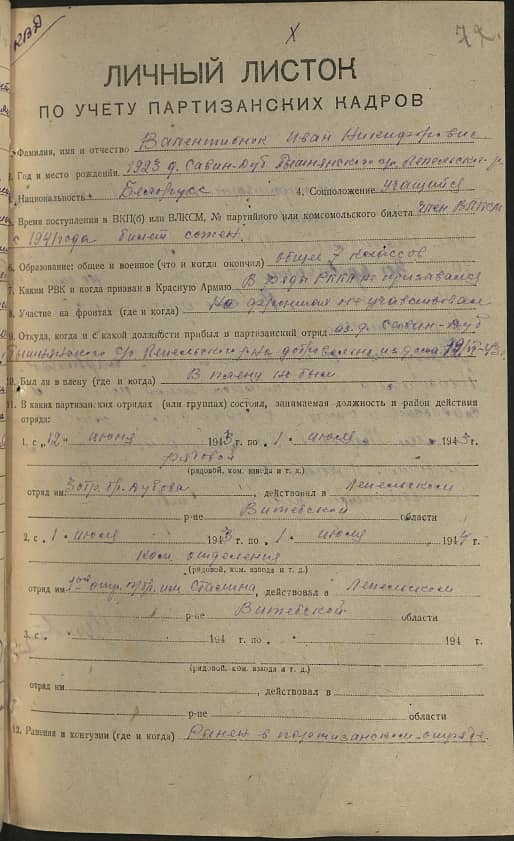 КВД
Х
72.
ЛИЧНЫЙ ЛИСТОК
ПО УЧЕТУ ПАРТИЗАНСКИХ КАДРОВ
Фамилия, имя и отчество Валентионок Иван Никифорович
2. Год и место рождения 1923 д. Савин-Дуб Пышнянского с/с Лепельского р.
Национальность Белорус 4. Соцположение учащийся
Время поступления в ВКП(б) или ВЛКСМ, № партийного или комсомольского билета член ВЛКСМ
с 1941 года билет сожжен
6. Образование: общее и военное (что и когда окончил) общее 7 классов
7. Каким РВК и когда призван в Красную Армию В ряды РККА не призывался
8. Участие на фронтах (где и когда) На фронтах не участвовал
9. Откуда, когда и с какой должности прибыл в партизанский отряд из д. Савин-Дуб
Пышнянского с/с Лепельского р-на добровольно из дома 12/VI-43г.
10. Был ли в плену (где и когда) В плену не был
11. В каких партизанских отрядах (или группах) состоял, занимаемая должность и район действия
отряда:
1. с „12" июня 1943 г. по „1 " июля 1943 г.
рядовой
(рядовой, ком. взвода и т. д.)
отряд им. 3 отр. бр. Дубова, действовал в Лепельском
р-не Витебской области
2. с „1 " июля 1943 г. по „1 " июля 1944 г.
ком. отделения
(рядовой, ком. взвода и т. д.)
отряд им. отр. бр. им. Сталина, действовал в Лепельском
р-не Витебской области
3. с „ " 194 г. по „ " 194 г.
(рядовой, ком. взвода и т. д.)
отряд им. , действовал в
р-не области
12. Ранения и контузии (где и когда) Ранен в партизанском отряде.